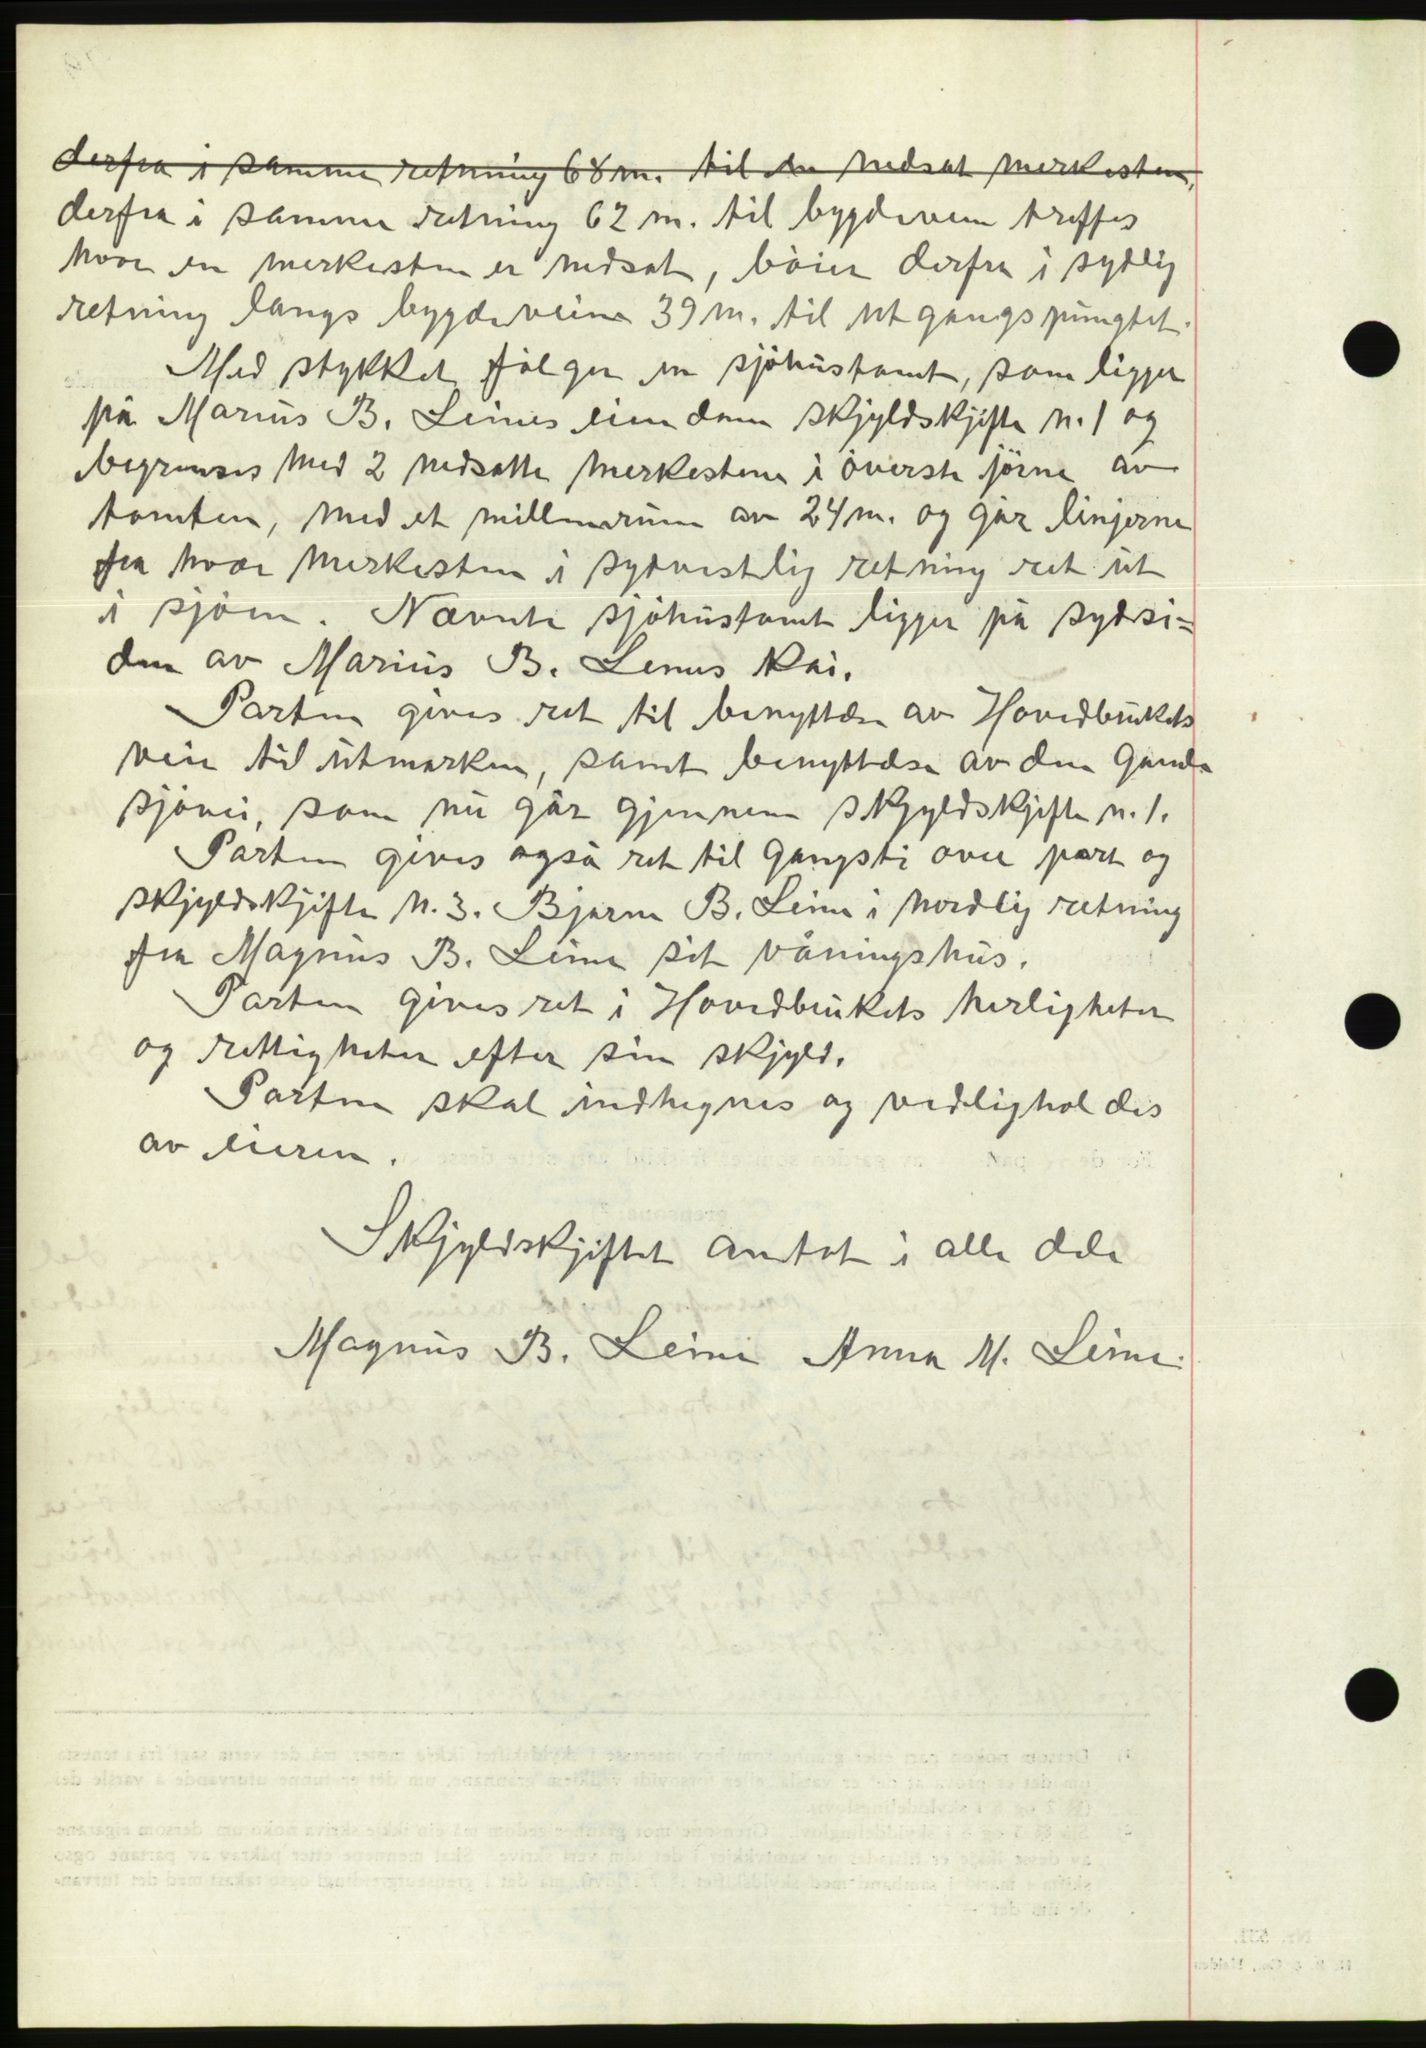 derfra i samme retning 68 m. til en nedsat merkesten,
derfra i samme retning 62 m. til bygdeveien treffes
hvor en merkesten er nedsat, böier derfra i sydlig
retning langs bygdeveien 39 m. til utgangspungtet.
Med stykket fölger en sjöhustomt, som ligger
på Marius B. Leines eiendom skjyldskjifte n. 1 og
begrenses med 2 nedsatte merkestene i överste jörne av
tomten, med et mellemrum av 24 m. og går linjerne
fra hver merkesten i sydvestlig retning ret ut
i sjöen. Nævnte sjöhustomt ligger på sydsi=
den av Marius B. Leines kai.
Parten gives ret til benyttelse av Hovedbrukets
veie til utmarken, samt benyttelse av den gamle
sjövei, som nu går gjennem skjyldskjifte n. 1.
Parten gives også ret til gangsti over part og
skjyldskjifte N. 3. Bjarne B. Leine i nordlig retning
fra Magnus B. Leine sit våningshus.
Parten gives ret i Hovedbrukets herligheter
og rettigheter efter sin skjyld.
Parten skal indhegnes og vedligholdes
av eieren.
Skjyldskjiftet antat i alle dele
Magnus B. Leine Anna M. Leine.